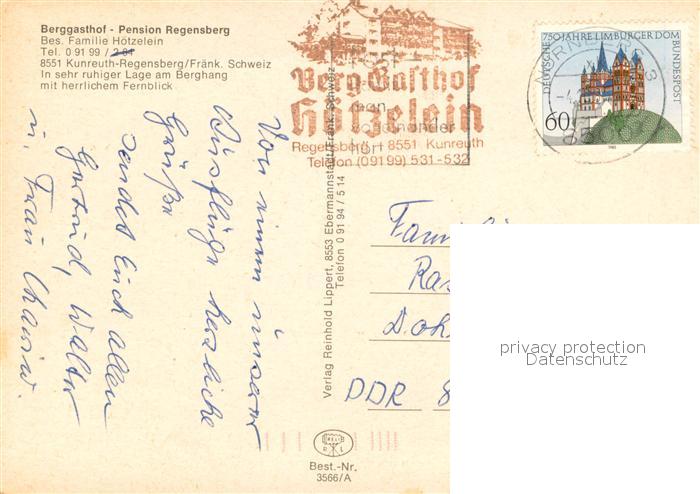 Berggasthof - Pension Regensberg
Bes. Familie Hötzelein
Tel. 0 91 99 /
8551 Kunreuth-Regensberg/Fränk. Schweiz
In sehr ruhiger Lage am Berghang
mit herrlichem Fernblick
Von einem unserer
Ausflüge herzliche
Grüße
sendet Euch allen
Gertrud, Walter
u. Frau
Berg-Gasthof
Hötzelein
Regensberg · 8551 Kunreuth
Telefon (09199) 531-532
Post
man
voneinander
hört
DEUTSCHE BUNDESPOST
750 JAHRE LIMBURGER DOM
60
1985
Verlag Reinhold Lippert, 8553 Ebermannstadt/Fränk. Schweiz
Telefon 0 91 94 / 5 14
Ras
Doh
DDR 8
privacy protection
Datenschutz
Best.-Nr.
3566/A